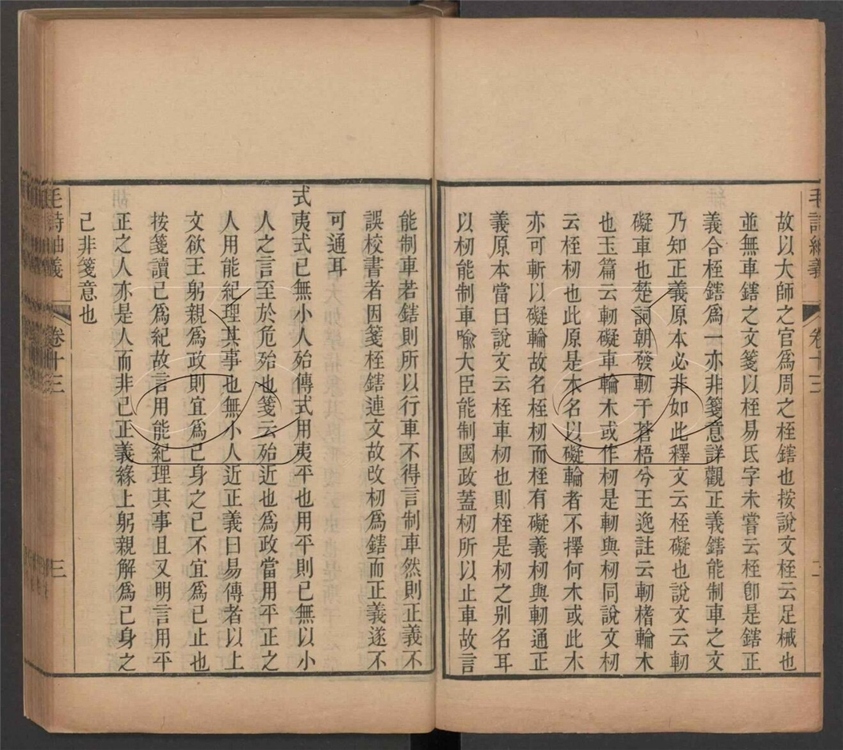 故以大師之官爲周之桎鎋也按說文桎云足械也
並無車鎋之文箋以桎易氐字未嘗云桎卽是鎋正
義合桎鎋爲一亦非箋意詳觀正義鎋能制車之文
乃知正義原本必非如此釋文云桎礙也說文云軔
礙車也楚詞朝發軔于蒼梧兮王逸註云軔榰輪木
也玉篇云軔礙車輪木或作杒是軔與杒同說文杒
云桎杒也此原是木名以礙輪者不擇何木或此木
亦可斬以礙輪故名桎杒而桎有礙義杒與軔通正
義原本當曰說文云桎車杒也則桎是杒之别名耳
以杒能制車喻大臣能制國政蓋杒所以止車故言
毛詩紬義
卷十三
能制車若鎋則所以行車不得言制車然則正義不
誤校書者因箋桎鎋連文故改杒爲鎋而正義遂不
可通耳
式夷式已無小人殆傳式用夷平也用平則已無以小
人之言至於危殆也箋云殆近也爲政當用平正之
人用能紀理其事也無小人近正義曰易傳者以上
文欲王躬親爲政則宜爲己身之己不宜爲已止也
按箋讀己爲紀故言用能紀理其事且又明言用平
正之人亦是人而非己正義緣上躬親解爲己身之
己非箋意也
毛詩紬義
卷十三
三